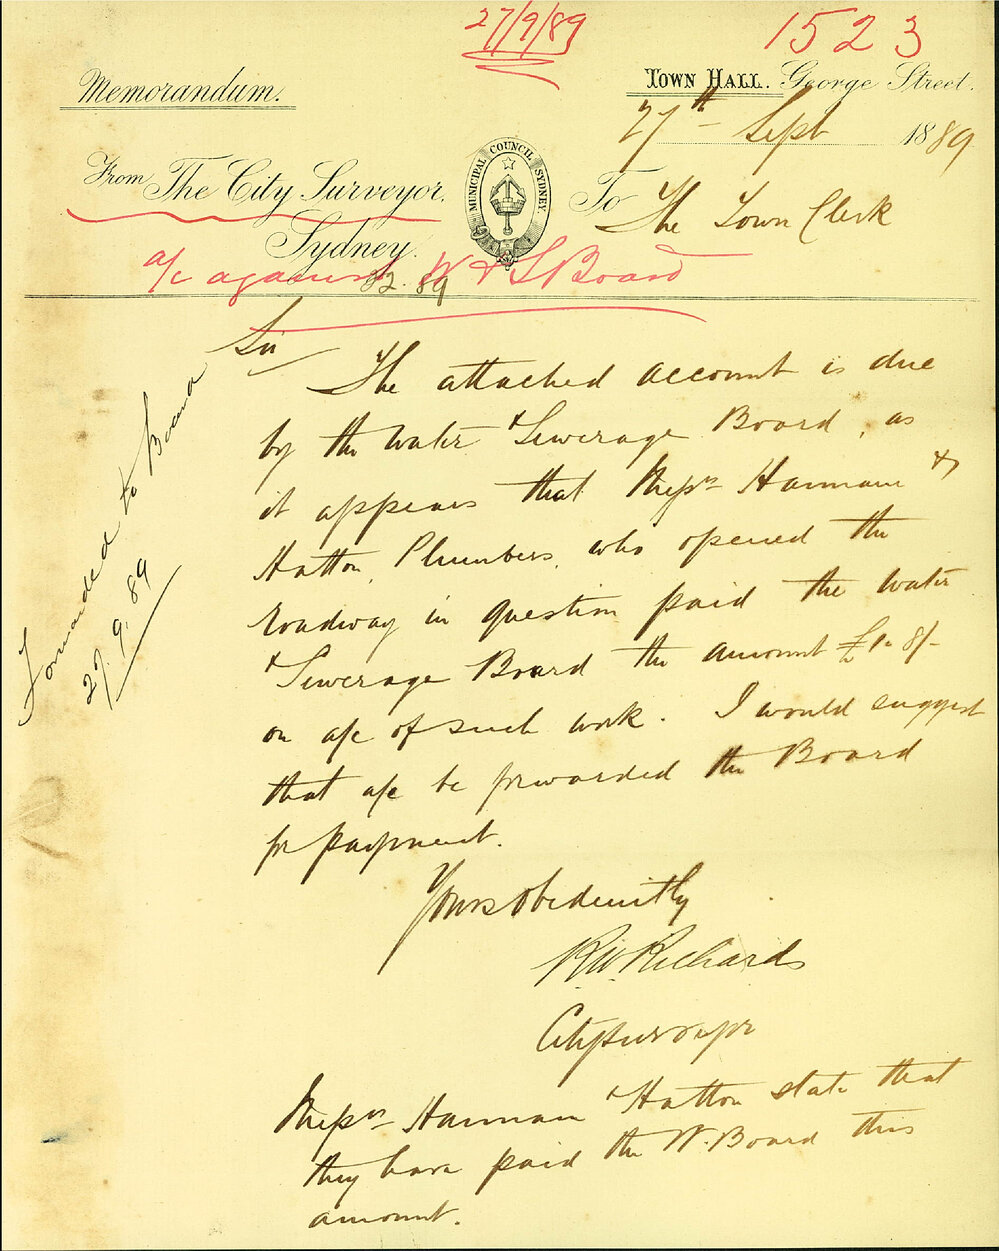 27/9/89
1523
Memorandum.
TOWN HALL. George Street.
27th Sept 1889
From The City Surveyor,
Sydney.
MUNICIPAL COUNCIL SYDNEY
To The Town Clerk
a/c against W & S Board
82.89
Sir
The attached account is due
by the Water & Sewerage Board, as
it appears that Messrs Hannam &
Hatton, Plumbers, who opened the
roadway in question paid the Water
& Sewerage Board the amount £1-8/-
on a/c of such work. I would suggest
that a/c be forwarded the Board
for payment.
Yours obediently
R W Richards
City Surveyor
Messrs Hannam & Hatton state that
they have paid the W. Board this
amount.
Forwarded to Board
27.9.89